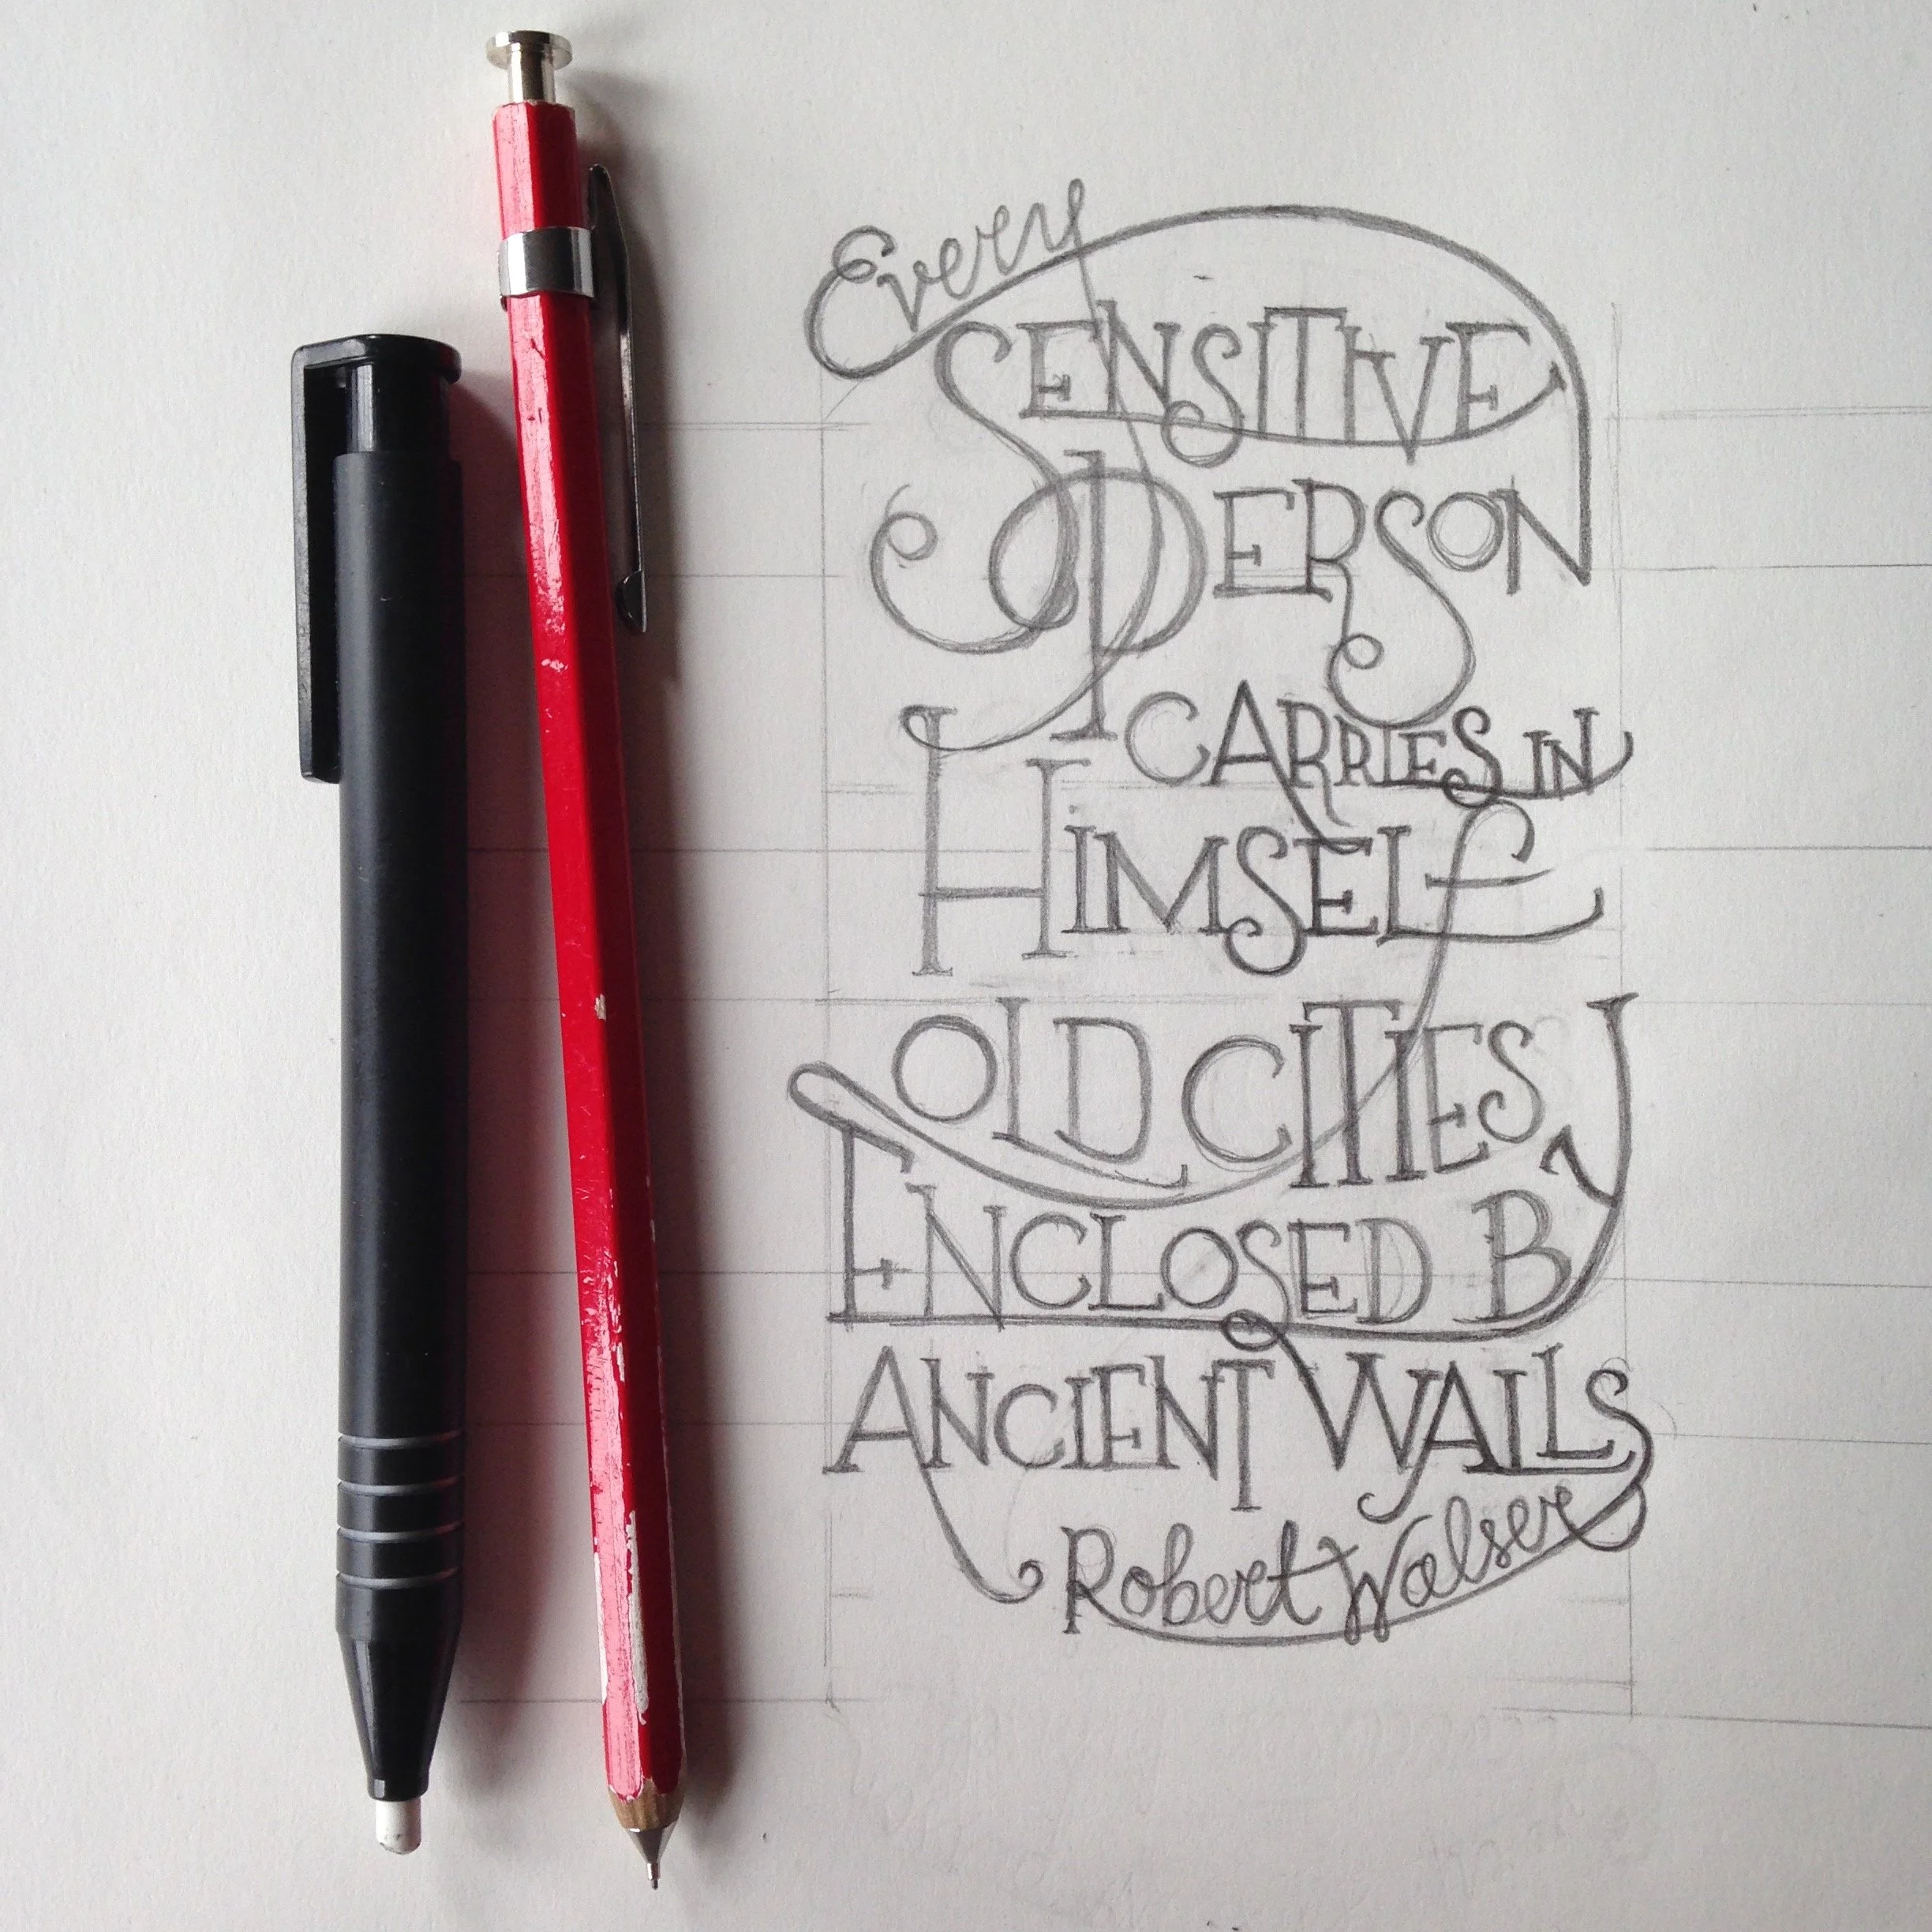 Every
SENSITIVE
PERSON
CARRIES IN
HIMSELf
OLD CITIES
ENCLOSED BY
ANCIENT WALLS
Robert Walser